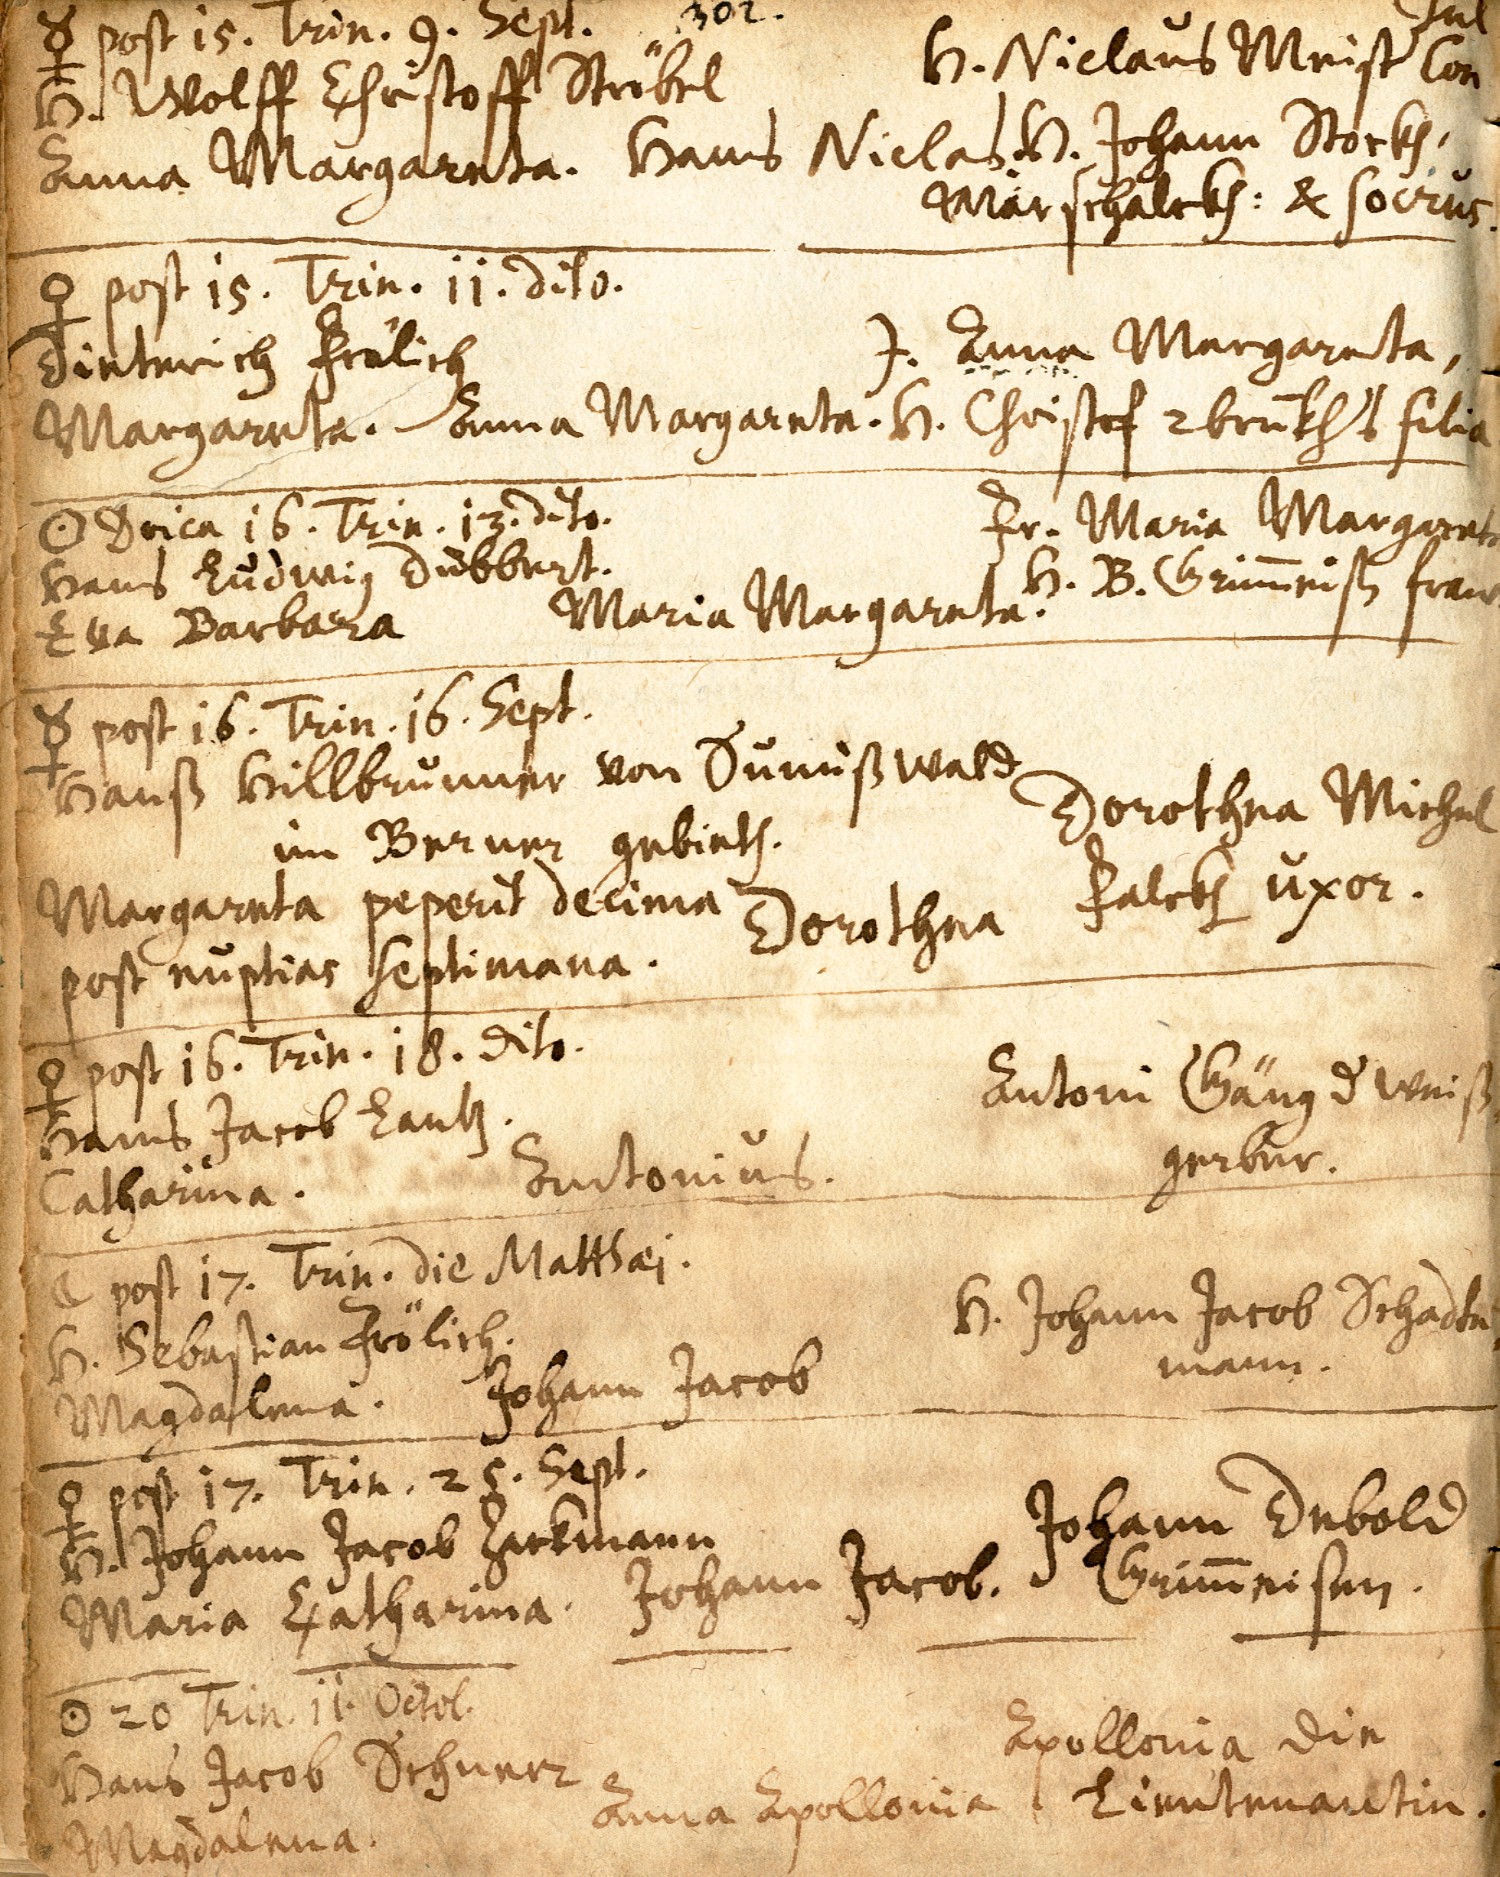 302.
☿ post 15. Trin. 9. Sept.
H. Wolff Christoff Ströbel
Anna Margareta. Hans Niclas.
H. Niclaus Meist
H. Johann Storkh.
Marschalckh: & socrus.
♀ post 15. Trin. 11. dito.
Dieterich Frölich
Margareta. Anna Margareta.
J. Anna Margareta,
H. Christof filia
☉ Dnica 16. Trin. 13. dito.
Hans Ludwig Dübbert.
Eva Barbara Maria Margareta.
Fr. Maria Margareta
H. B. Grim̄eiß fraw
☿ post 16. Trin. 16. Sept.
Hanß Hillbrunner von Sumißwald
im Berner gebieth.
Margareta peperit decima
post nuptias septimana. Dorothea
Dorothea Michel
Falckh uxor.
♀ post 16. Trin. 18. dito.
Hans Jacob Lautz.
Catharina. Antonius.
Antoni Gäng d weiß
gerber.
☾ post 17. Trin. die Matthæi.
H. Sebastian Frölich.
Magdalena. Johann Jacob
H. Johann Jacob Schadte
mann.
♀ post 17. Trin. 25. Sept.
H. Johann Jacob Zackmann
Maria Catharina. Johann Jacob.
Johann Debold
Grim̄eisen.
☉ 20 Trin. 11. Octob.
Hans Jacob Scheuerr
Magdalena. Anna Apollonia
Apollonia die
Lieutenantin.